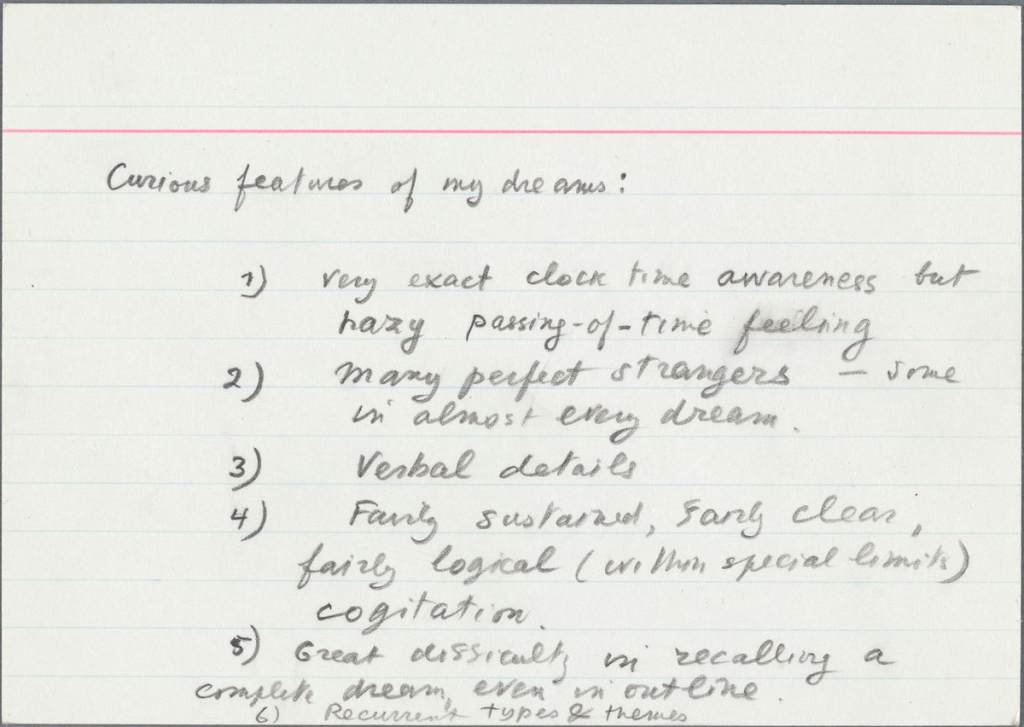 Curious features of my dreams:
1) very exact clock time awareness but
hazy passing-of-time feeling
2) Many perfect strangers — some
in almost every dream.
3) Verbal details
4) Fairly sustained, fairly clear,
fairly logical (within special limits)
cogitation.
5) Great difficulty in recalling a
complete dream, even in outline.
6) Recurrent types & themes